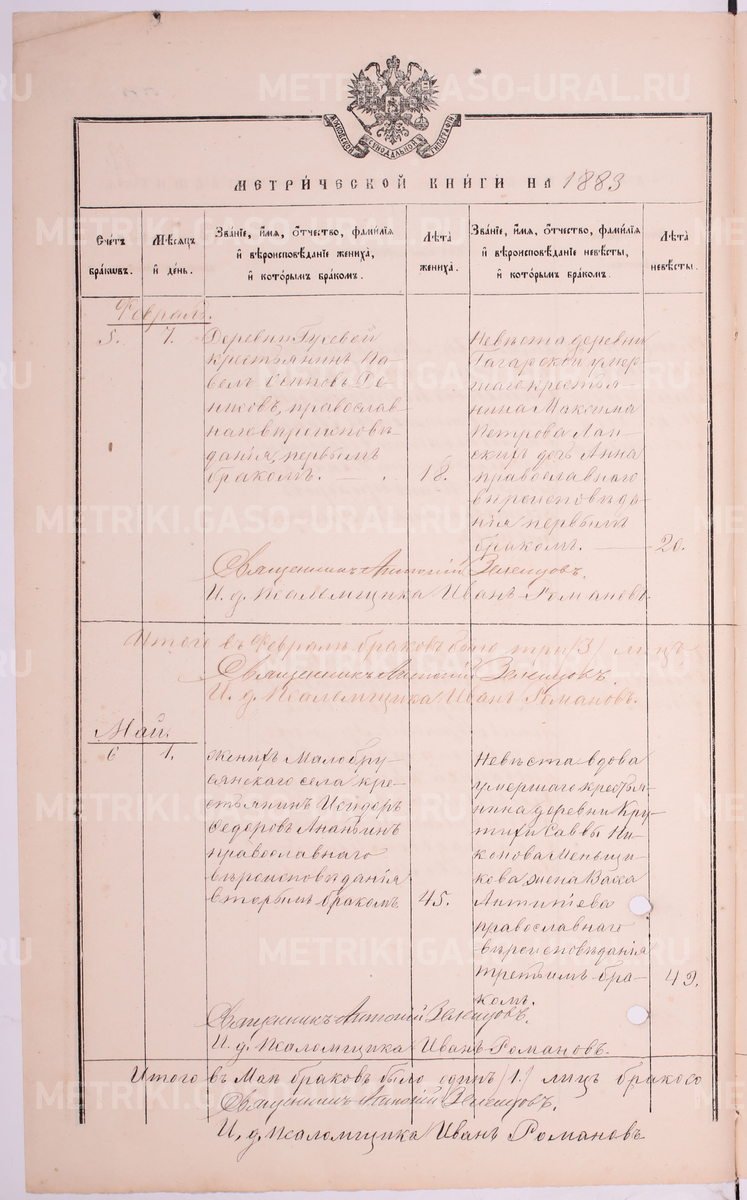 МЕТРИ́ЧЕСКОЙ КНИ́ГИ НА 1883
Сче́тъ бра́ковъ.
Мѣ́сяцъ и́ день.
Зва́нїе, и́мя, ѻ́тчество, фами́лїя и҆ вѣроисповѣ́данїе жениха̀, и҆ кото́рымъ бра́комъ.
Лѣ́та жениха̀.
Зва́нїе, и́мя, ѻ́тчество, фами́лїя и҆ вѣроисповѣ́данїе невѣ́сты, и҆ кото́рымъ бра́комъ.
Лѣ́та невѣ́сты.
Февраль.
5. 7.
Деревни Гусевой
крестьянинъ Па-
велъ Осиповъ Де-
нисовъ, православ
наго вѣроисповѣ-
данія, первымъ
бракомъ.
18.
Невѣста деревни
Гагарской умер
шаго крестья-
нина Максима
Петрова
дочь Анна
православнаго
вѣроисповѣда-
нія первымъ
бракомъ.
20.
Священникъ
И. д. Псаломщика Иванъ Романовъ.
Итого въ Февралѣ браковъ было три /3/ лицъ
Священникъ
И. д. Псаломщика Иванъ Романовъ.
Май.
6 1.
Женихъ Малобру-
сянскаго села кре-
стьянинъ Исидоръ
Федоровъ Ананьинъ
православнаго
вѣроисповѣданія
вторымъ бракомъ
45.
Невѣста вдова
умершаго крестья-
нина деревни Кру-
тихи Саввы Ни-
конова Меньщи-
кова жена Васса
Антипіева
православнаго
вѣроисповѣданія
третьимъ бра-
комъ.
49.
Священникъ
И. д. Псаломщика Иванъ Романовъ.
Итого въ Маѣ браковъ было одинъ /1./ лицъ бракосо
Священникъ
И. д. Псаломщика Иванъ Романовъ
METRIKI.GASO-URAL.RU